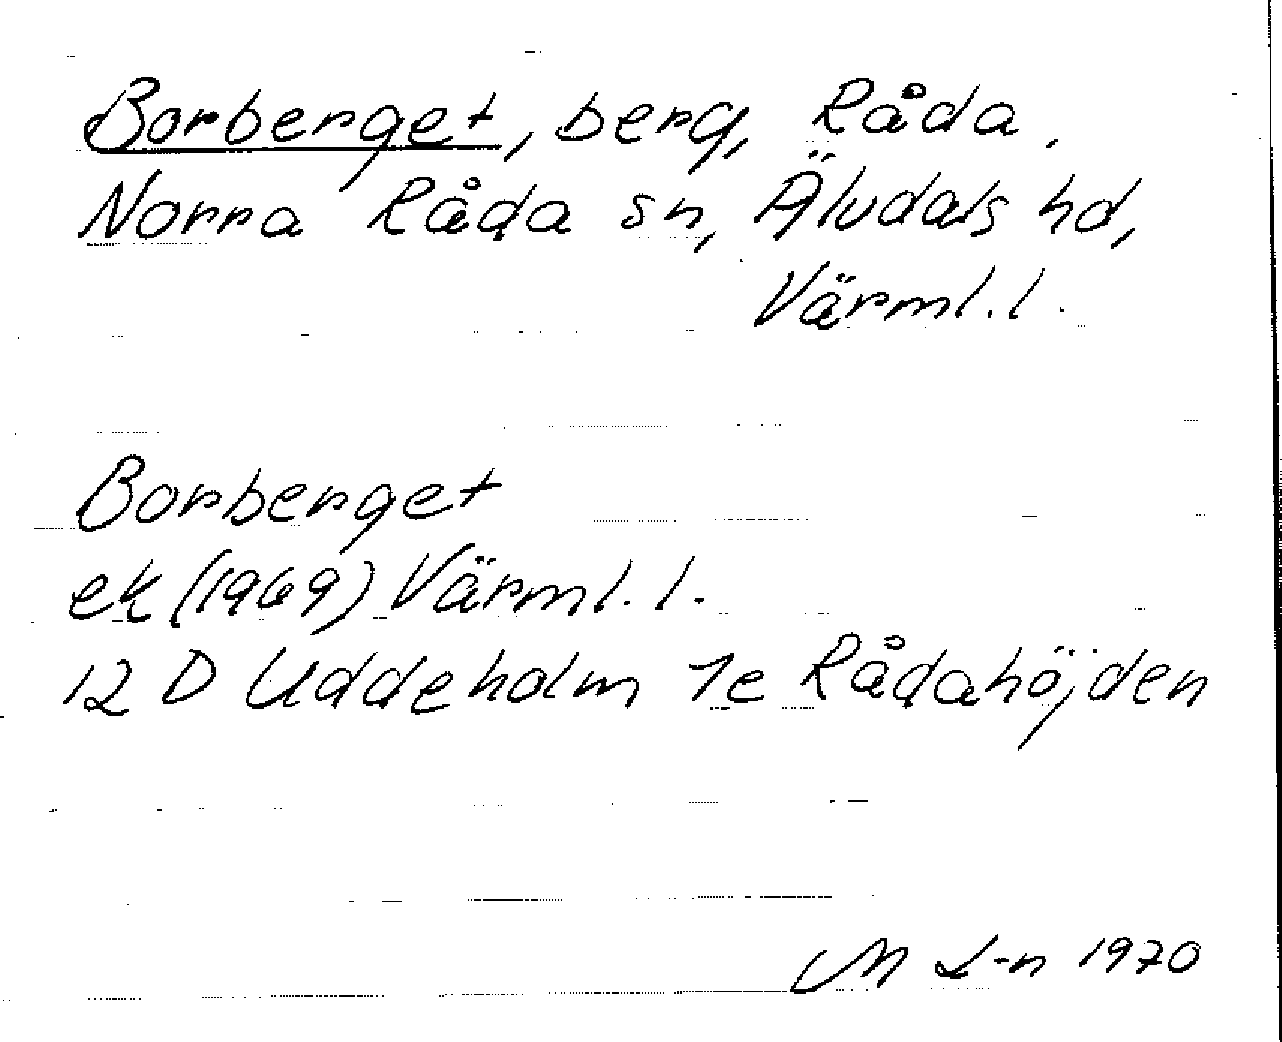 Borberget, berg, Råda,
Norra Råda sn, Älvdals hd,
Värml. l.
Borberget
ek (1969) Värml. l.
12 D Uddeholm 1e Rådahöjden
M L-n 1970